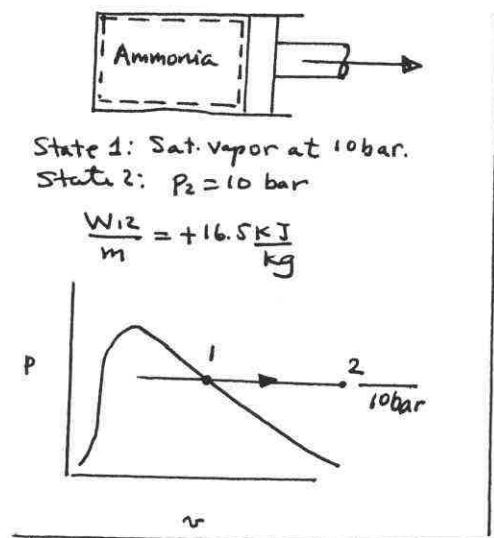 Ammonia
State 1: Sat. vapor at 10 bar.
State 2: P₂ = 10 bar
W₁₂/m = +16.5 KJ/kg
P
1
2
10 bar
v